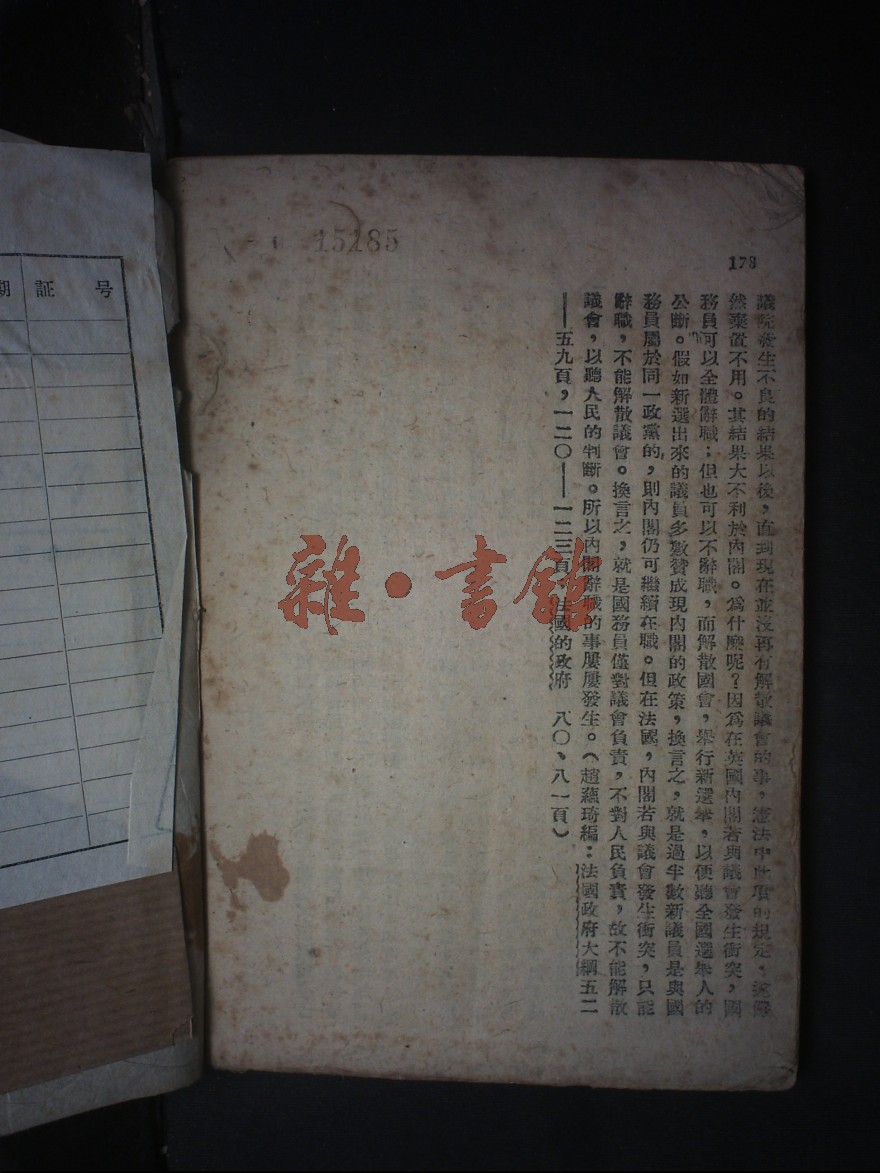 178
議院發生不良的結果以後，直到現在並沒再有解散議會的事，憲法中此項的規定，遂儼
然棄置不用。其結果大不利於內閣。爲什麼呢？因爲在英國內閣若與議會發生衝突，國
務員可以全體辭職；但也可以不辭職，而解散國會，舉行新選舉，以便聽全國選舉人的
公斷。假如新選出來的議員多數贊成現內閣的政策，換言之，就是過半數新議員是與國
務員屬於同一政黨的，則內閣仍可繼續在職。但在法國，內閣若與議會發生衝突，只能
辭職，不能解散議會。換言之，就是國務員僅對議會負責，不對人民負責，故不能解散
議會，以聽人民的判斷。所以內閣辭職的事屢屢發生。（趙蘊琦編：法國政府大綱五二
——五九頁，一二〇——一二三頁，法國的政府 八〇、八一頁）
15185
雜·書館
期 証 号